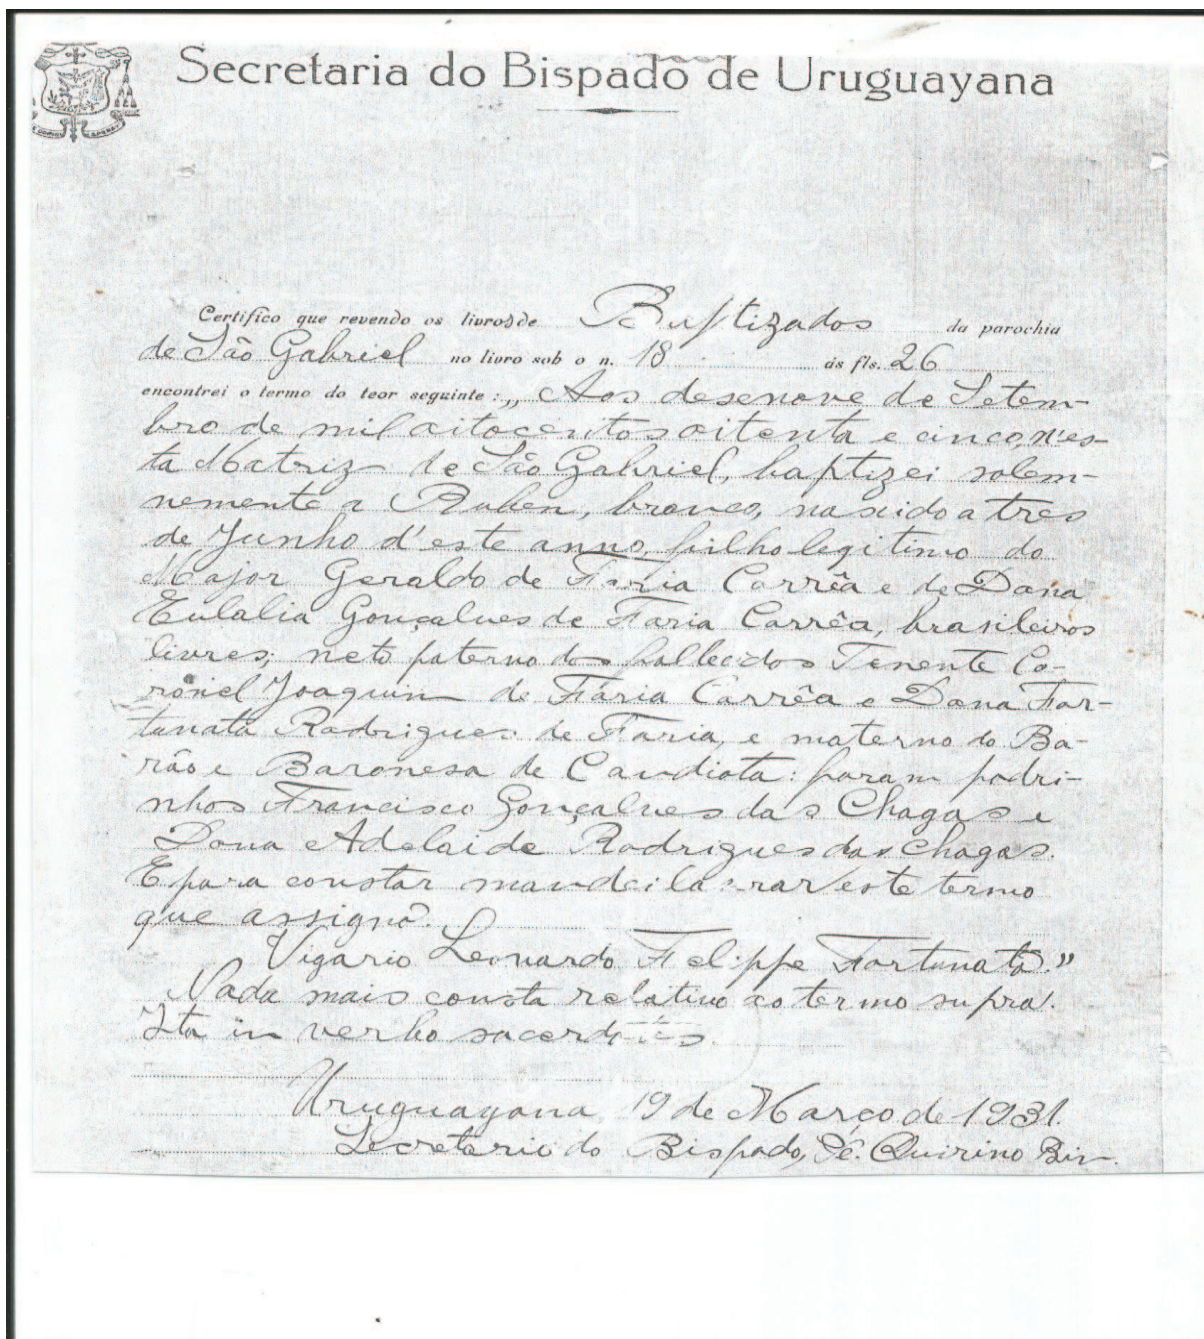 Secretaria do Bispado de Uruguayana
Certifico que revendo os livros de Baptizados da parochia
de São Gabriel no livro sob o n. 18 ás fls. 26
encontrei o termo do teor seguinte: „Aos desenove de Setem-
bro de mil oitocentos oitenta e cinco, n'es-
ta Matriz de São Gabriel, baptizei solem-
nemente a Ruben, branco, nascido a tres
de Junho d'este anno, filho legitimo do
Major Geraldo de Faria Corrêa e de Dona
Eulalia Gonçalves de Faria Corrêa, brasileiros
livres; neto paterno dos fallecidos Tenente Co-
ronel Joaquim de Faria Corrêa e Dona For-
tunata Rodrigues de Faria, e materno do Ba-
rão e Baronesa de Candiota: foram padri-
nhos Francisco Gonçalves das Chagas e
Dona Adelaide Rodrigues das Chagas.
E para constar mandei lavrar este termo
que assigno.
Vigario Leonardo Felippe Fortunato."
Nada mais consta relativo ao termo supra.
Ita in verbo sacerdotis.
Uruguayana, 19 de Março de 1931.
Secretario do Bispado, Pe. Quirino